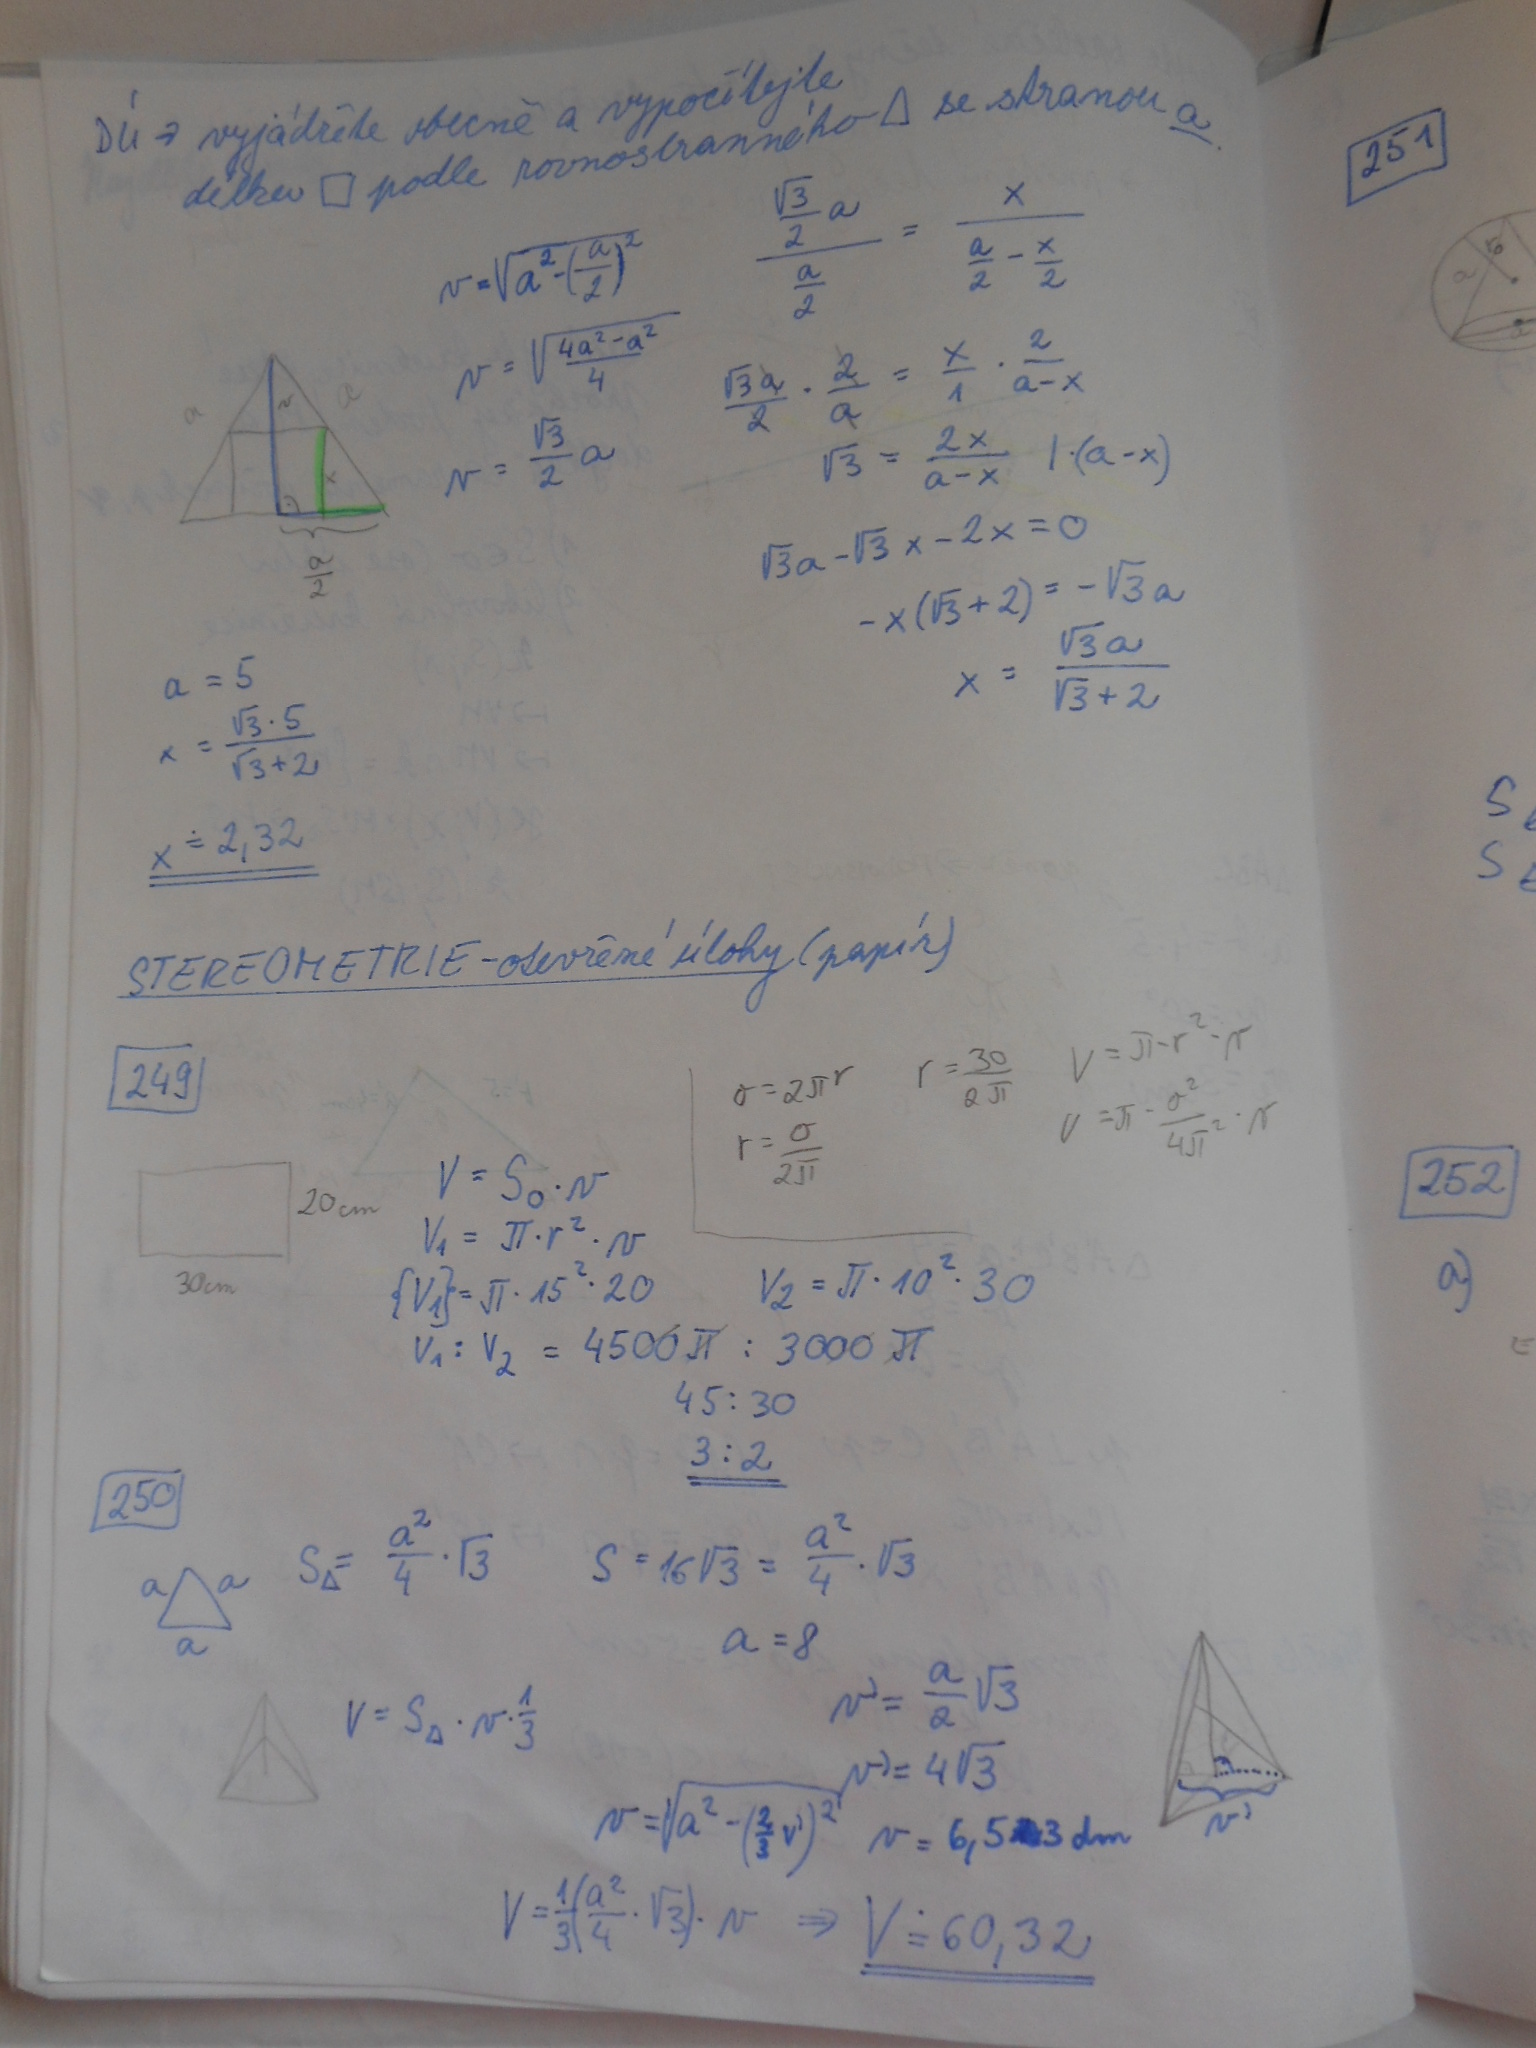 DÚ → vyjádřete obecně a vypočítejte
délku □ podle rovnostranného △ se stranou a.
v = √(a² - (a/2)²)
v = √((4a² - a²)/4)
v = √3/2 a
a
v
a
x
a/2
(√3/2 a)/(a/2) = x/(a/2 - x/2)
√3a/2 · 2/a = x/1 · 2/(a-x)
√3 = 2x/(a-x) |·(a-x)
√3a - √3x - 2x = 0
-x(√3+2) = -√3a
x = √3a/(√3+2)
a = 5
x = √3·5/(√3+2)
x ≐ 2,32
STEREOMETRIE - otevřené úlohy (papír)
249
20cm
30cm
o = 2πr
r = o/2π
r = 30/2π
V = π·r²·v
V = π·o²/4π²·v
V = S₀·v
V₁ = π·r²·v
{V₁} = π·15²·20
V₂ = π·10²·30
V₁ : V₂ = 4500π : 3000π
45:30
3:2
250
a
a
a
S△ = a²/4·√3
S = 16√3 = a²/4·√3
a = 8
V = S△·v·1/3
v' = a/2 √3
v' = 4√3
v = √(a² - (2/3 v')²)
v = 6,53 dm
v'
V = 1/3(a²/4·√3)·v ⇒ V ≐ 60,32
251
a
252
a)